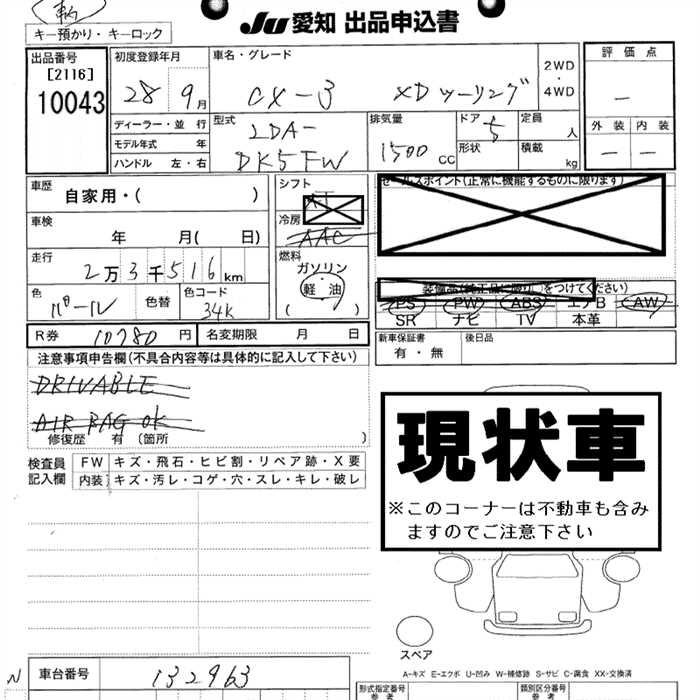 JU 愛知 出品申込書
キー預かり・キーロック
出品番号
[2116]
10043
初度登録年月
28年9月
車名・グレード
CX-3 XDツーリング
2WD・4WD
評価点
—
外装 内装
— —
ディーラー・並行
モデル年式 年
ハンドル 左・右
型式
LDA-
DK5FW
排気量
1500 CC
ドア 5
形状
定員 人
積載 kg
車歴
自家用・( )
シフト
AT
冷房
AAC
車検
年 月( 日)
走行
2万3千516km
燃料
ガソリン
軽油
( )
色
パール
色替
色コード
34K
R券 10780円 名変期限 月 日
セールスポイント(正常に機能するものに限ります)
装備品(純正品に限り○をつけてください)
PS PW ABS エアB AW
SR ナビ TV 本革
新車保証書
有・無
後日品
注意事項申告欄(不具合内容等は具体的に記入して下さい)
DRIVABLE
AIR BAG OK
修復歴 有 (箇所 )
現状車
※このコーナーは不動車も含み
ますのでご注意下さい
検査員
記入欄
FW キズ・飛石・ヒビ割・リペア跡・X要
内装 キズ・汚レ・コゲ・穴・スレ・キレ・破レ
スペア
A-キズ E-エクボ U-凹み W-補修跡 S-サビ C-腐食 XX-交換済
N
車台番号 132963
形式指定番号
参考
類別区分番号
参考